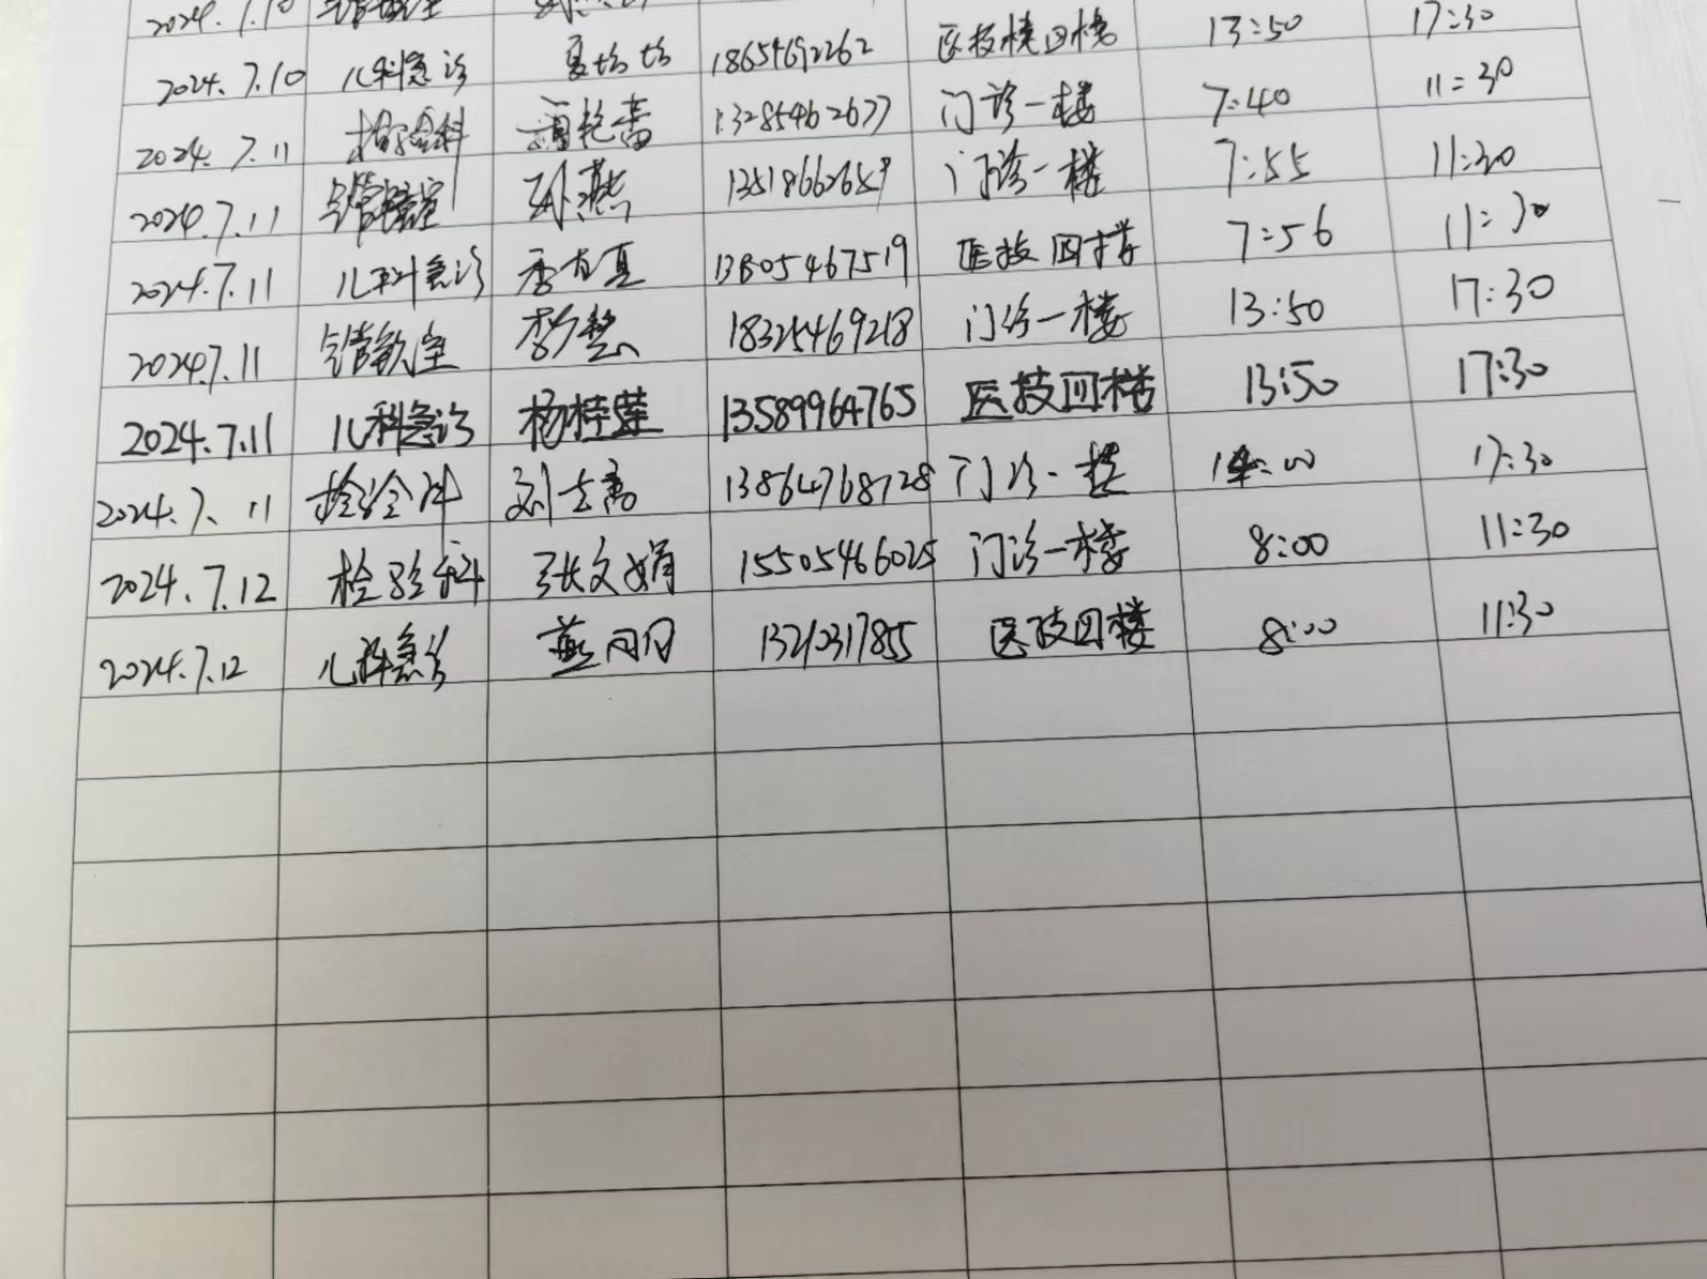 2024.7.10
2024.7.10 儿科急诊 夏怡怡 18654692262 医技楼四楼 13:50 17:30
2024.7.11 检验科 艳 13285462677 门诊一楼 7:40 11:30
2024.7.11 孙燕 门诊一楼 7:55 11:30
2024.7.11 儿科急诊 季 真 医技四楼 7:56 11:30
2024.7.11 李慧 18325469218 门诊一楼 13:50 17:30
2024.7.11 儿科急诊 杨桂莲 13589964765 医技四楼 13:50 17:30
2024.7.11 检验科 刘 13864768728 门诊一楼 14:00 17:30
2024.7.12 检验科 张文娟 15505466025 门诊一楼 8:00 11:30
2024.7.12 儿科急诊 燕 医技四楼 8:00 11:30